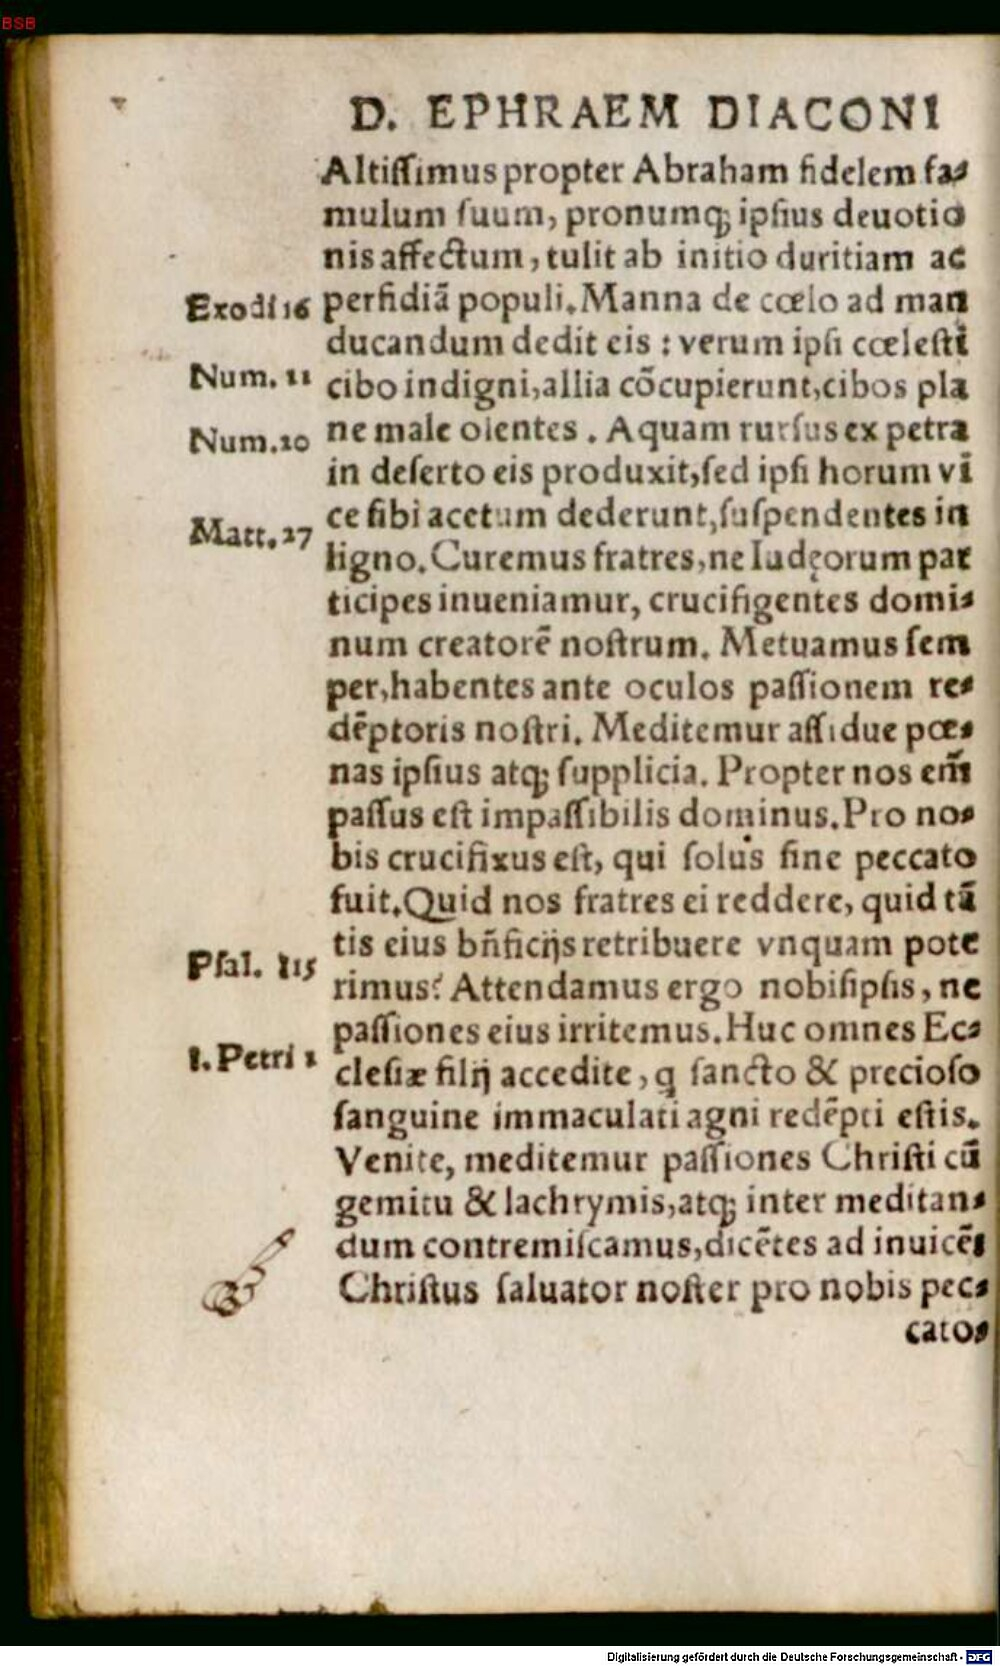 BSB
D. EPHRAEM DIACONI
Altiſſimus propter Abraham fidelem fa⸗
mulum ſuum, pronumq; ipſius deuotio
nis affectum, tulit ab initio duritiam ac
Exodi 16 perfidiã populi. Manna de cœlo ad man
ducandum dedit eis : verum ipſi cœleſti
Num. 11 cibo indigni, allia cõcupierunt, cibos pla
Num. 20 ne male olentes . Aquam rurſus ex petra
in deſerto eis produxit, ſed ipſi horum vi
Matt. 27 ce ſibi acetum dederunt, ſuſpendentes in
ligno. Curemus fratres, ne Iudęorum par
ticipes inueniamur, crucifigentes domi⸗
num creatorẽ noſtrum. Metuamus ſem
per, habentes ante oculos paſſionem re⸗
dẽptoris noſtri. Meditemur aſſidue pœ⸗
nas ipſius atq; ſupplicia. Propter nos em̃
paſſus eſt impaſſibilis dominus. Pro no⸗
bis crucifixus eſt, qui ſolus ſine peccato
fuit. Quid nos fratres ei reddere, quid tã
Pſal. 115 tis eius bñficijs retribuere vnquam pote
rimus? Attendamus ergo nobiſipſis, ne
paſſiones eius irritemus. Huc omnes Ec⸗
1. Petri 1 cleſiæ filij accedite, q ſancto & precioſo
ſanguine immaculati agni redẽpti eſtis.
Venite, meditemur paſſiones Chriſti cũ
gemitu & lachrymis, atq; inter meditan⸗
dum contremiſcamus, dicẽtes ad inuicẽ:
Chriſtus ſaluator noſter pro nobis pec⸗
cato⸗
Digitalisierung gefördert durch die Deutsche Forschungsgemeinschaft - DFG